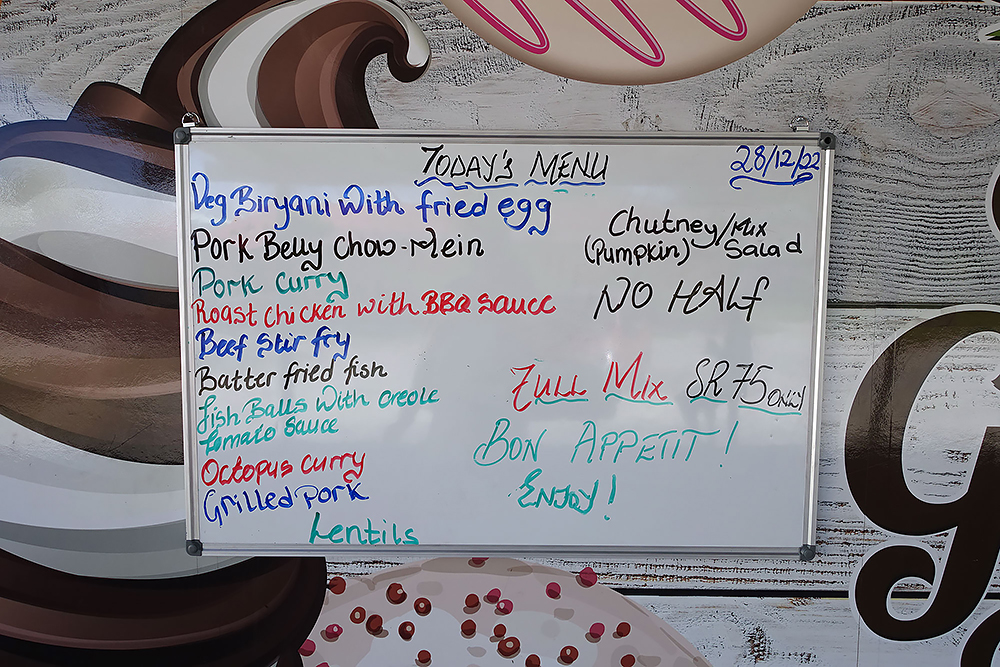 TODAY'S MENU
28/12/22
Veg Biryani With fried egg
Pork Belly Chow-Mein
Pork Curry
Roast chicken with BBQ sauce
Beef Stir fry
Batter fried fish
fish Balls with creole
tomato sauce
Octopus curry
Grilled pork
Lentils
Chutney/Mix
(Pumpkin) Salad
NO HALF
FULL MIX SR 75 ONLY
BON APPETIT!
ENJOY!
G